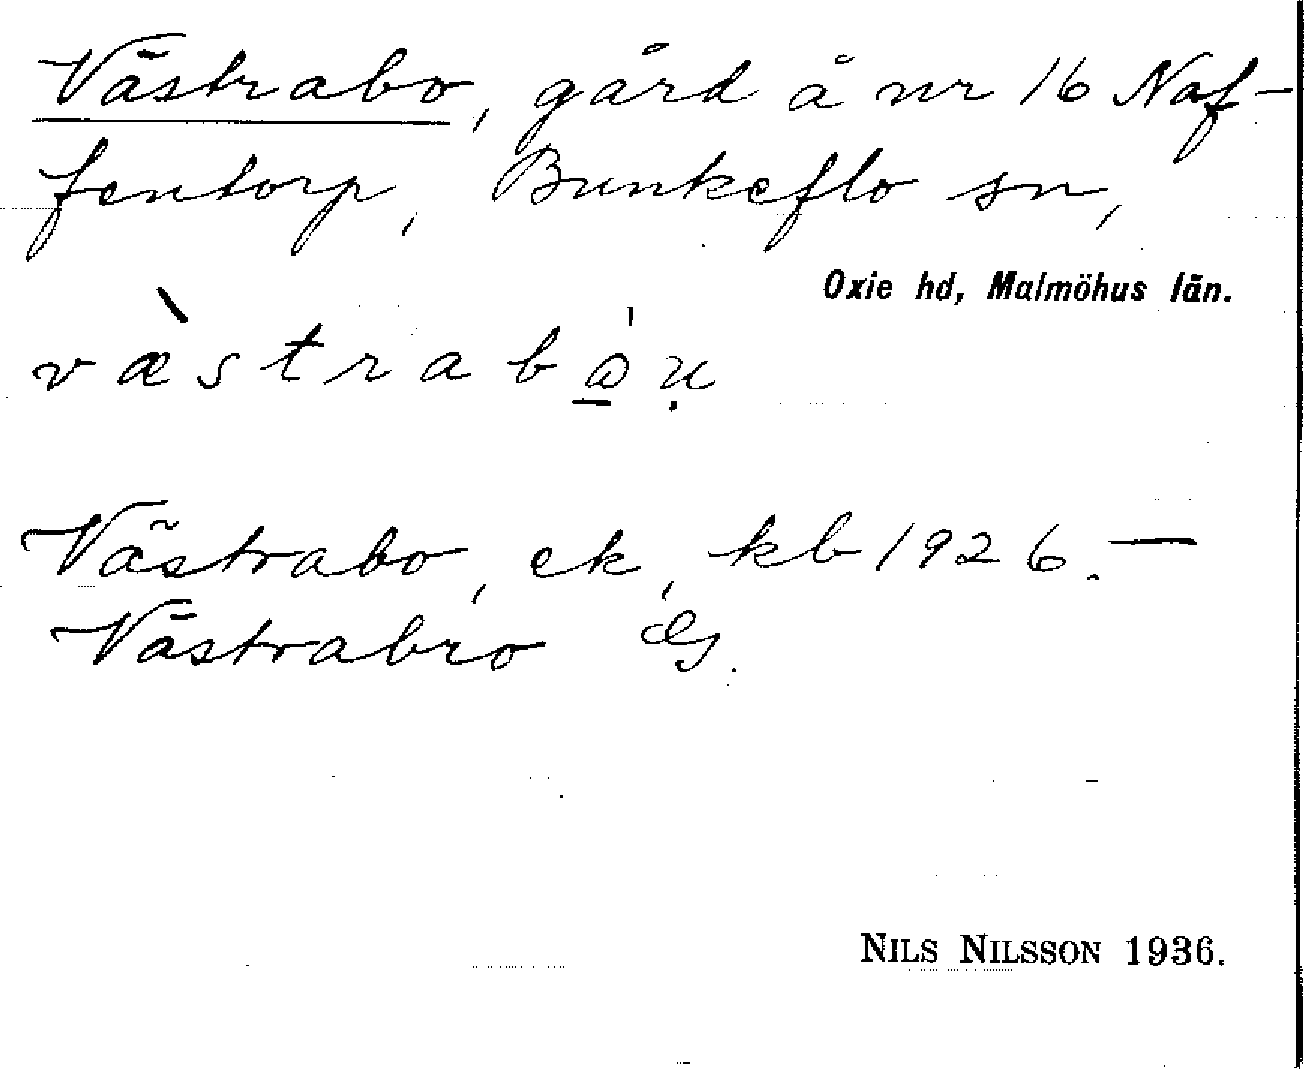 Västrabo, gård å nr 16 Naf-
fentorp, Bunkeflo sn,
Oxie hd, Malmöhus län.
væ̀strabo̲ụ
Västrabo, ek, kb 1926. —
Västrabro
NILS NILSSON 1936.